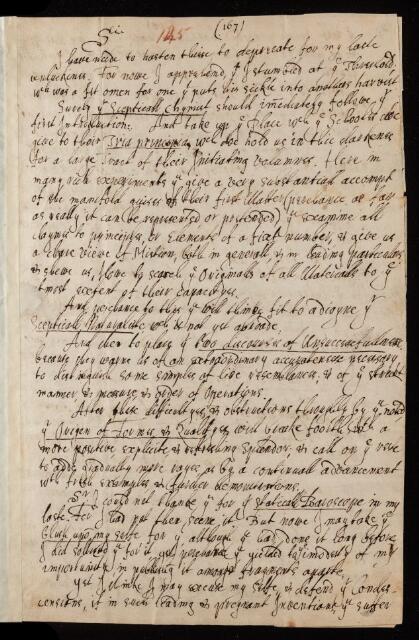 Sir.
145
(167)
I have need to hasten these to deprecate for my late
For nowe I apprehend, yt I stumbled at ye Threshold.
wch was a fit omen for one yt puts his sickle into anothers harvest
Surely ye Scepticall Chymist should immediately follow ye
first Introduction: And take up ye Place wch ye Schooles do
give to their Tria principia, wch do hold us in thicke darknesse
for a large Tract of their Initiating volumnes. Here in
many rich experiments yu give a very substantiall accompt
of the manifold guises of their first Matter
as neerly it can be represented or pretended) yu examine all
claymes to principles, or Elements of a fixt number, & give us
a cleare Viewe of Mixtion, both in generall, & in leading particulars
& shewe us, Howe to search ye Originalls of all Materialls to ye
utmost extent of their capacityes.
And perchance to this yu will thinke fit to adioyne yr
Scepticall Naturalist wch is not yet abroade.
And then to place yr two discourses of Unsuccessfullnesse
because they warne us of an extraordinary accuratenesse necessary
to distinguish some simples of like resemblance, & of ye
manner & measure, & order of Operations.
After these difficultyes, & obstructions
ye Origen of Formes & Qualityes will breake foorth with a
more positive explicite & refreshing splendor, & call on yr
to adde gradually more rayes, as by a continuall advancement
with fresh examples & further demonstrations.
Sr I could not thanke yu for yr Staticall Baroscope in my
laste. For I had not then seene it. But nowe I may take ye
Blush upon my selfe for yu, although yu had done it long before
I did sollicite yu for it, yet perchance yu yielded
importunity in publishing it amongst fragments aparte.
Yet I thinke I may excuse my selfe, & defend yr Conde-
censions, if in such leading & pregnant Inventions, yu suffer